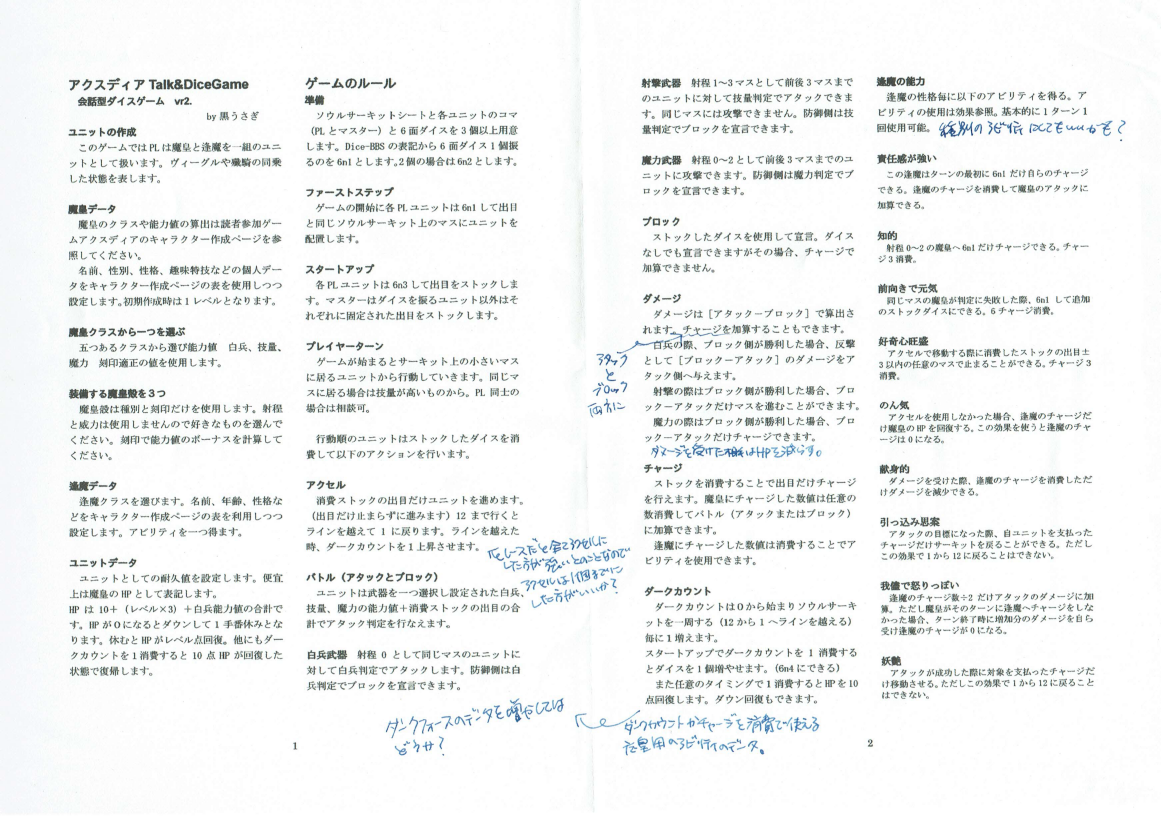 アクスディア Talk&DiceGame
会話型ダイスゲーム　vr2.
by 黒うさぎ
ユニットの作成
このゲームではPLは魔皇と逢魔を一組のユニッ
トとして扱います。ヴィーグルや殲騎の同乗
した状態を表します。
魔皇データ
魔皇のクラスや能力値の算出は読者参加ゲー
ムアクスディアのキャラクター作成ページを参
照してください。
名前、性別、性格、趣味特技などの個人デー
タをキャラクター作成ページの表を使用しつつ
設定します。初期作成時は１レベルとなります。
魔皇クラスから一つを選ぶ
五つあるクラスから選び能力値　白兵、技量、
魔力　刻印適正の値を使用します。
装備する魔皇殻を３つ
魔皇殻は種別と刻印だけを使用します。射程
と威力は使用しませんので好きなものを選んで
ください。刻印で能力値のボーナスを計算して
ください。
逢魔データ
逢魔クラスを選びます。名前、年齢、性格な
どをキャラクター作成ページの表を利用しつつ
設定します。アビリティを一つ得ます。
ユニットデータ
ユニットとしての耐久値を設定します。便宜
上は魔皇のHPとして表記します。
HP は 10＋（レベル×3）＋白兵能力値の合計で
す。HPが０になるとダウンして１手番休みとな
ります。休むとHPがレベル点回復。他にもダー
クカウントを１消費すると 10 点 HP が回復した
状態で復帰します。
ゲームのルール
準備
ソウルサーキットシートと各ユニットのコマ
（PLとマスター）と６面ダイスを３個以上用意
します。Dice-BBS の表記から６面ダイス１個振
るのを 6n1とします。2個の場合は6n2とします。
ファーストステップ
ゲームの開始に各PLユニットは6n1して出目
と同じソウルサーキット上のマスにユニットを
配置します。
スタートアップ
各PLユニットは6n3して出目をストックしま
す。マスターはダイスを振るユニット以外はそ
れぞれに固定された出目をストックします。
プレイヤーターン
ゲームが始まるとサーキット上の小さいマス
に居るユニットから行動していきます。同じマ
スに居る場合は技量が高いものから。PL 同士の
場合は相談可。
行動順のユニットはストックしたダイスを消
費して以下のアクションを行います。
アクセル
消費ストックの出目だけユニットを進めます。
（出目だけ止まらずに進みます）12 まで行くと
ラインを越えて 1 に戻ります。ラインを越えた
時、ダークカウントを１上昇させます。
レースだと全てアクセルに
した方が強いとのことなので
アクセルは1個までに
した方がいいか？
バトル（アタックとブロック）
ユニットは武器を一つ選択し設定された白兵、
技量、魔力の能力値＋消費ストックの出目の合
計でアタック判定を行なえます。
白兵武器　射程 0 として同じマスのユニットに
対して白兵判定でアタックします。防御側は白
兵判定でブロックを宣言できます。
ダークフォースのデータを増やしては
どうか？
1
射撃武器　射程 1～3 マスとして前後 3 マスまで
のユニットに対して技量判定でアタックできま
す。同じマスには攻撃できません。防御側は技
量判定でブロックを宣言できます。
魔力武器　射程 0～2 として前後 3 マスまでのユ
ニットに攻撃できます。防御側は魔力判定でブ
ロックを宣言できます。
ブロック
ストックしたダイスを使用して宣言。ダイス
なしでも宣言できますがその場合、チャージで
加算できません。
ダメージ
ダメージは［アタックーブロック］で算出さ
れます。チャージを加算することもできます。
アタック
と
ブロック
両方に
白兵の際、ブロック側が勝利した場合、反撃
として［ブロックーアタック］のダメージをア
タック側へ与えます。
射撃の際はブロック側が勝利した場合、ブロ
ックーアタックだけマスを進むことができます。
魔力の際はブロック側が勝利した場合、ブロ
ックーアタックだけチャージできます。
ダメージを受けた相手はHPを減らす。
チャージ
ストックを消費することで出目だけチャージ
を行えます。魔皇にチャージした数値は任意の
数消費してバトル（アタックまたはブロック）
に加算できます。
逢魔にチャージした数値は消費することでア
ビリティを使用できます。
ダークカウント
ダークカウントは０から始まりソウルサーキ
ットを一周する（12 から 1 へラインを越える）
毎に１増えます。
スタートアップでダークカウントを 1 消費する
とダイスを１個増やせます。（6n4 にできる）
また任意のタイミングで１消費するとHPを10
点回復します。ダウン回復もできます。
ダークカウントかチャージを消費で使える
魔皇用のアビリティのデータ。
2
逢魔の能力
逢魔の性格毎に以下のアビリティを得る。ア
ビリティの使用は効果参照。基本的に１ターン１
回使用可能。
種別のアビリティにしてもいいかも？
責任感が強い
この逢魔はターンの最初に 6n1 だけ自らのチャージ
できる。逢魔のチャージを消費して魔皇のアタックに
加算できる。
知的
射程 0～2 の魔皇へ 6n1 だけチャージできる。チャー
ジ 3 消費。
前向きで元気
同じマスの魔皇が判定に失敗した際、6n1 して追加
のストックダイスにできる。6 チャージ消費。
好奇心旺盛
アクセルで移動する際に消費したストックの出目±
3 以内の任意のマスで止まることができる。チャージ 3
消費。
のん気
アクセルを使用しなかった場合、逢魔のチャージだ
け魔皇の HP を回復する。この効果を使うと逢魔のチャ
ージは 0 になる。
献身的
ダメージを受けた際、逢魔のチャージを消費しただ
けダメージを減少できる。
引っ込み思案
アタックの目標になった際、自ユニットを支払った
チャージだけサーキットを戻ることができる。ただし
この効果で 1 から 12 に戻ることはできない。
我儘で怒りっぽい
逢魔のチャージ数÷2 だけアタックのダメージに加
算。ただし魔皇がそのターンに逢魔へチャージをしな
かった場合、ターン終了時に増加分のダメージを自ら
受け逢魔のチャージが 0 になる。
妖艶
アタックが成功した際に対象を支払ったチャージだ
け移動させる。ただしこの効果で 1 から 12 に戻ること
はできない。